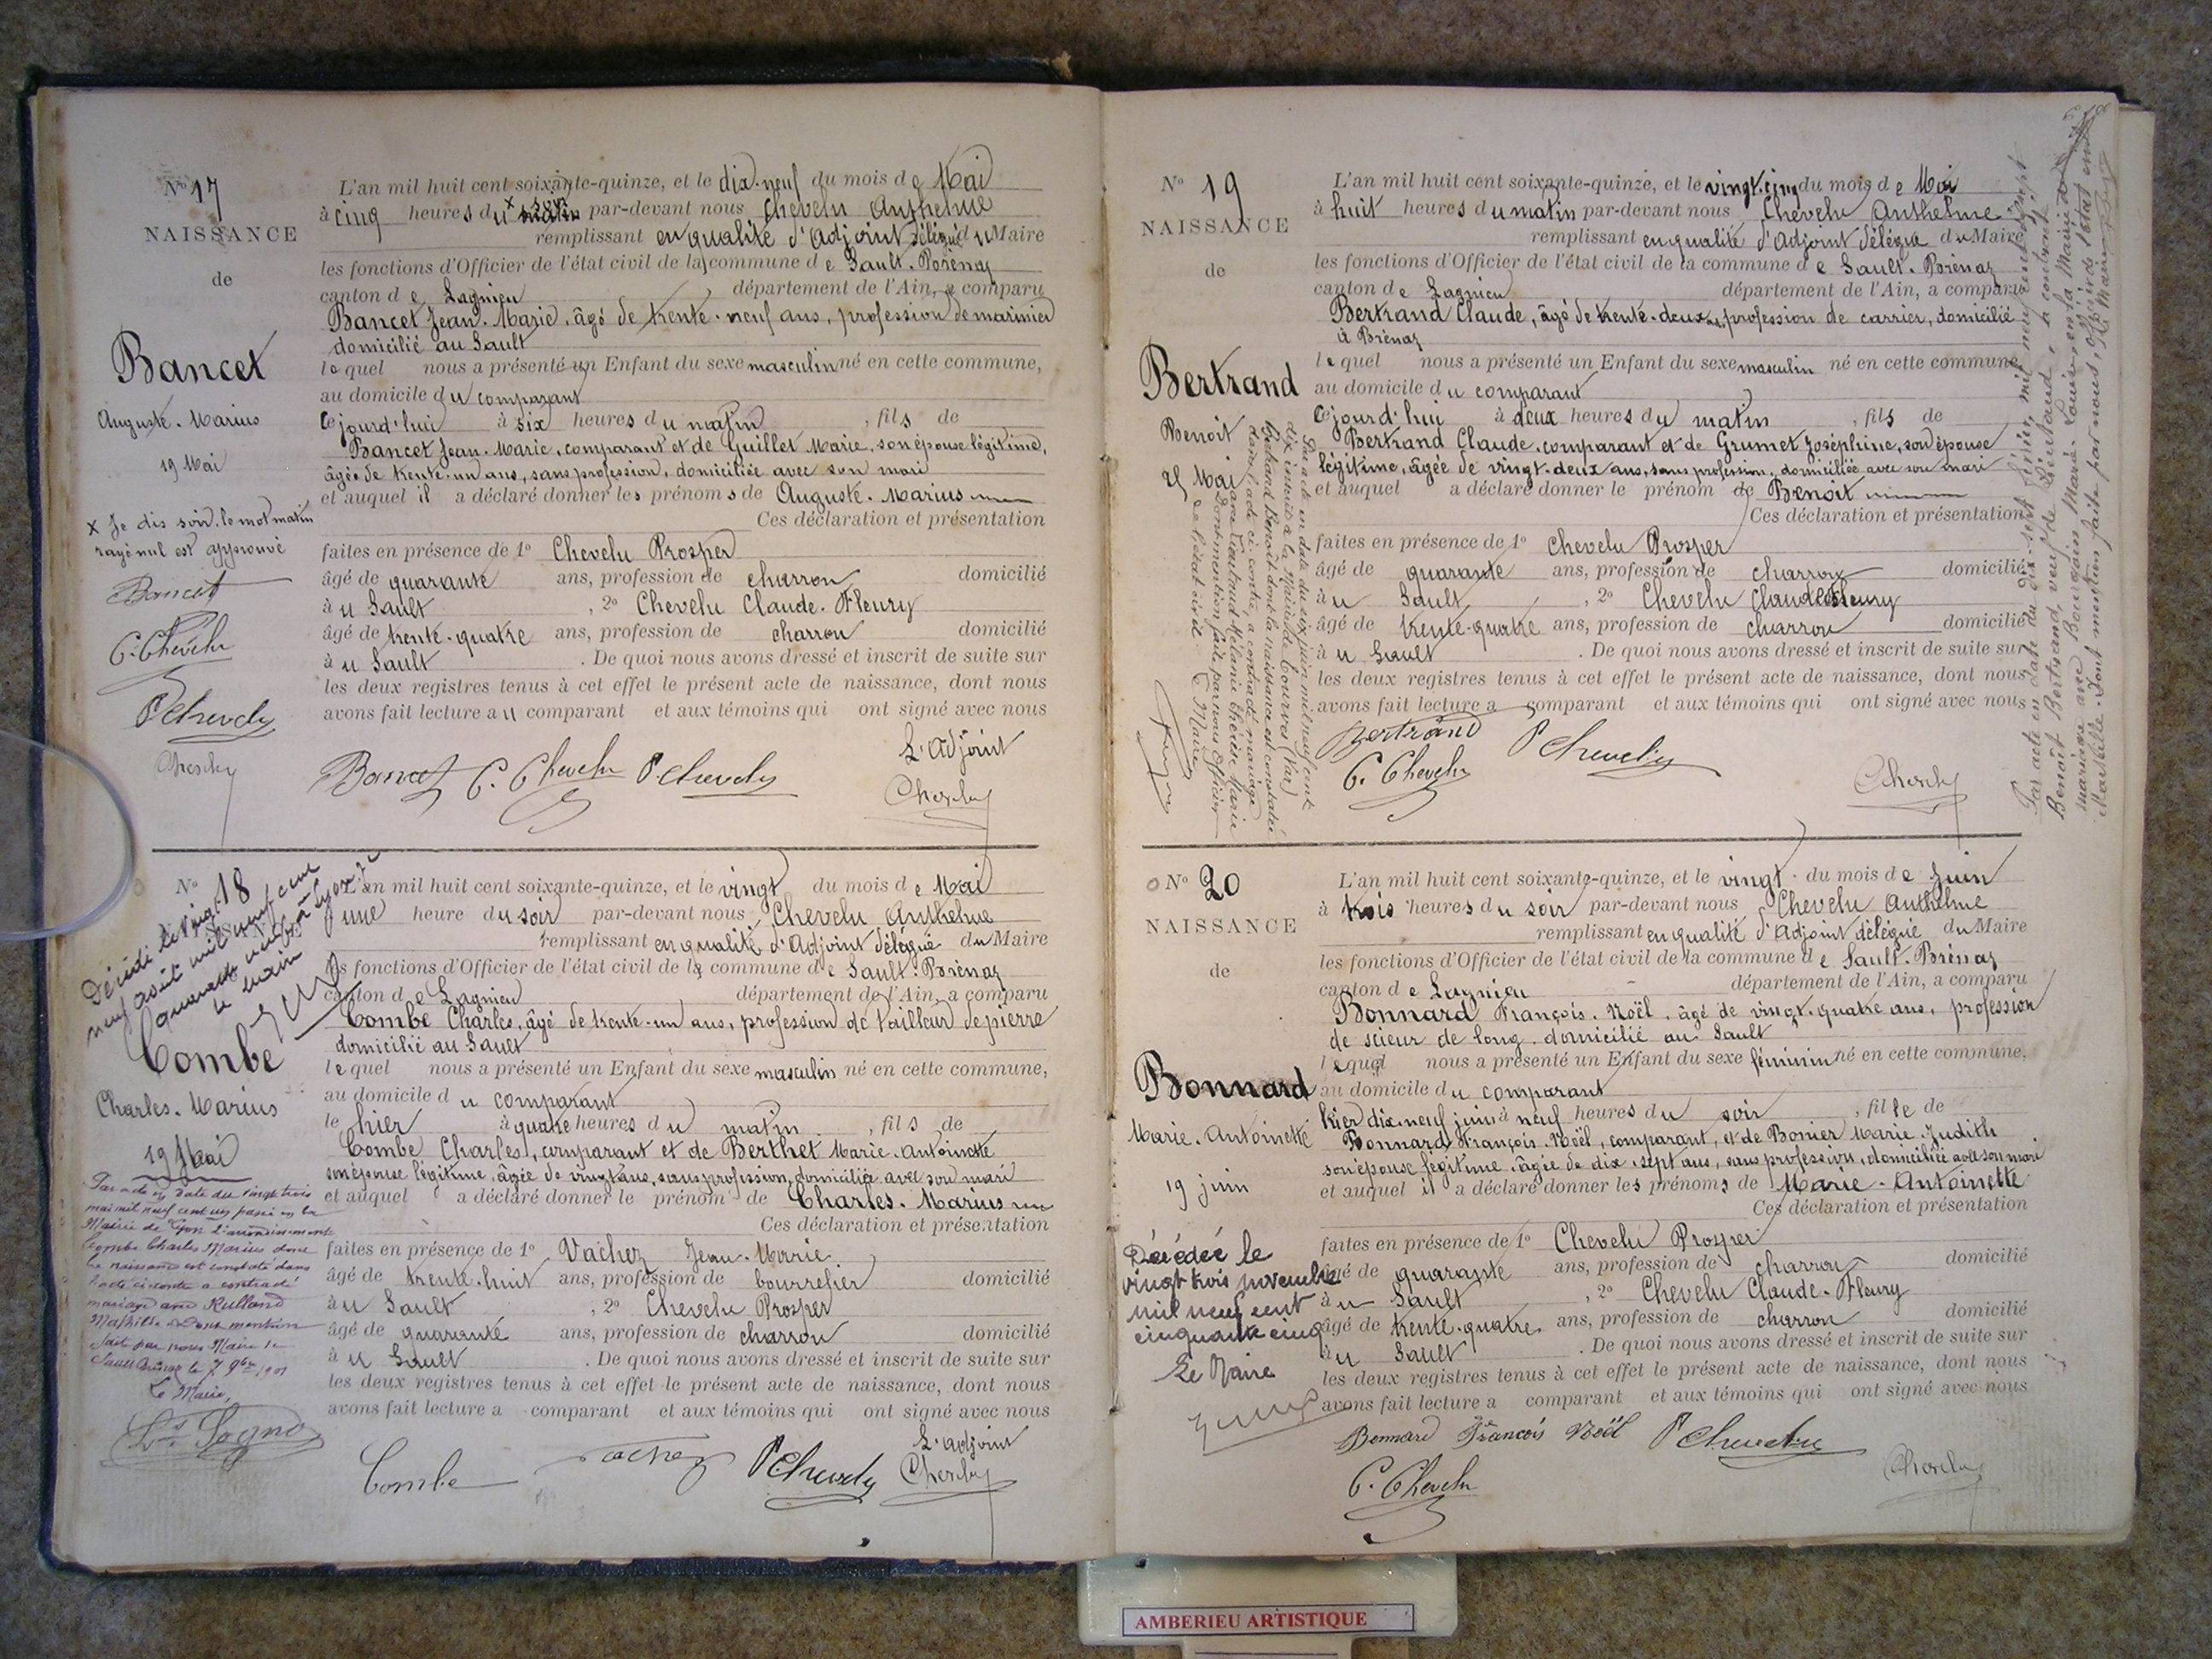 N° 17
NAISSANCE
de
Bancet
Auguste. Marius
19 Mai
x Je dis soir. le mot matin
rayé nul est approuvé
Bancet
C. Chevelu
P Chevelu
L'an mil huit cent soixante-quinze, et le dix-neuf du mois de Mai
à cinq heures du x soir matin par-devant nous Chevelu Anthelme
remplissant en qualité d'Adjoint délégué du Maire
les fonctions d'Officier de l'état civil de la commune de Sault-Brénaz
canton de Lagnieu département de l'Ain, a comparu
Bancet Jean-Marie, âgé de trente-neuf ans, profession de marinier
domicilié au Sault
lequel nous a présenté un Enfant du sexe masculin né en cette commune,
au domicile du comparant
cejourd'hui à six heures du matin, fils de
Bancet Jean-Marie, comparant et de Guillet Marie, son épouse légitime,
âgée de trente-un ans, sans profession, domiciliée avec son mari
et auquel il a déclaré donner les prénoms de Auguste. Marius
Ces déclaration et présentation
faites en présence de 1° Chevelu Prosper
âgé de quarante ans, profession de charron domicilié
à u Sault, 2° Chevelu Claude-Fleury
âgé de trente-quatre ans, profession de charron domicilié
à u Sault. De quoi nous avons dressé et inscrit de suite sur
les deux registres tenus à cet effet le présent acte de naissance, dont nous
avons fait lecture au comparant et aux témoins qui ont signé avec nous
L'Adjoint
Bancet C. Chevelu P Chevelu
N° 18
Décédé le vingt
neuf août mil neuf cent
quarante
le maire
Combe
Charles. Marius
19 Mai
Par acte en date du vingt trois
mai mil neuf cent un passé en la
Mairie de Lyon 2e arrondissement
Combe Charles Marius dont
la naissance est constatée dans
l'acte ci contre a contracté
mariage avec Rulland
Mathilde. Dont mention
faite par nous Maire de
Sault Brénaz le 7 9bre 1901
Le Maire,
L'an mil huit cent soixante-quinze, et le vingt du mois de Mai
à une heure du soir par-devant nous Chevelu Anthelme
remplissant en qualité d'Adjoint délégué du Maire
les fonctions d'Officier de l'état civil de la commune de Sault-Brénaz
canton de Lagnieu département de l'Ain, a comparu
Combe Charles, âgé de trente-un ans, profession de tailleur de pierre
domicilié au Sault
lequel nous a présenté un Enfant du sexe masculin né en cette commune,
au domicile du comparant
le hier à quatre heures du matin, fils de
Combe Charles, comparant et de Berthet Marie-Antoinette
son épouse légitime, âgée de vingt ans, sans profession, domiciliée avec son mari
et auquel a déclaré donner le prénom de Charles. Marius
Ces déclaration et présentation
faites en présence de 1° Vachez Jean-Marie
âgé de trente-huit ans, profession de bourrelier domicilié
à u Sault, 2° Chevelu Prosper
âgé de quarante ans, profession de charron domicilié
à u Sault. De quoi nous avons dressé et inscrit de suite sur
les deux registres tenus à cet effet le présent acte de naissance, dont nous
avons fait lecture a comparant et aux témoins qui ont signé avec nous
L'adjoint
Combe Vachez P Chevelu
N° 19
NAISSANCE
de
Bertrand
Benoît
25 Mai
Par acte en date du six juin mil neuf cent
dix inscrit à la Mairie de Tourves (Var)
Bertrand Benoît dont la naissance est constatée
dans l'acte ci-contre, a contracté mariage
avec Mélanie Thérèse Marie
Dont mention faite par nous Officier
de l'état civil
Le Maire
L'an mil huit cent soixante-quinze, et le vingt-cinq du mois de Mai
à huit heures du matin par-devant nous Chevelu Anthelme
remplissant en qualité d'Adjoint délégué du Maire
les fonctions d'Officier de l'état civil de la commune de Sault-Brénaz
canton de Lagnieu département de l'Ain, a comparu
Bertrand Claude, âgé de trente-deux ans, profession de carrier, domicilié
à Brénaz
lequel nous a présenté un Enfant du sexe masculin né en cette commune,
au domicile du comparant
cejourd'hui à deux heures du matin, fils de
Bertrand Claude, comparant et de Grumet Joséphine, son épouse
légitime, âgée de vingt-deux ans, sans profession, domiciliée avec son mari
et auquel a déclaré donner le prénom de Benoit
Ces déclaration et présentation
faites en présence de 1° Chevelu Prosper
âgé de quarante ans, profession de charron domicilié
à u Sault, 2° Chevelu Claude Fleury
âgé de trente-quatre ans, profession de charron domicilié
à u Sault. De quoi nous avons dressé et inscrit de suite sur
les deux registres tenus à cet effet le présent acte de naissance, dont nous
avons fait lecture a comparant et aux témoins qui ont signé avec nous
Bertrand P Chevelu
C. Chevelu
Par acte en date du dix-sept février mil neuf cent
Benoît Bertrand, veuf de a contracté
mariage avec Marie-Louise, en la Mairie de
Marseille. Dont mention faite par nous, officier de l'état civil
N° 20
NAISSANCE
de
Bonnard
Marie-Antoinette
19 juin
Décédée le
vingt trois novembre
mil neuf cent
cinquante cinq
Le Maire
L'an mil huit cent soixante-quinze, et le vingt du mois de Juin
à trois heures du soir par-devant nous Chevelu Anthelme
remplissant en qualité d'Adjoint délégué du Maire
les fonctions d'Officier de l'état civil de la commune de Sault-Brénaz
canton de Lagnieu département de l'Ain, a comparu
Bonnard François-Noël, âgé de vingt-quatre ans, profession
de scieur de long, domicilié au Sault
lequel nous a présenté un Enfant du sexe féminin né en cette commune,
au domicile du comparant
hier dix-neuf juin à neuf heures du soir, fille de
Bonnard François-Noël, comparant, et de Bonier Marie-Judith
son épouse légitime, âgée de dix-sept ans, sans profession, domiciliée avec son mari
et auquel il a déclaré donner les prénoms de Marie-Antoinette
Ces déclaration et présentation
faites en présence de 1° Chevelu Prosper
âgé de quarante ans, profession de charron domicilié
à u Sault, 2° Chevelu Claude-Fleury
âgé de trente-quatre ans, profession de charron domicilié
à u Sault. De quoi nous avons dressé et inscrit de suite sur
les deux registres tenus à cet effet le présent acte de naissance, dont nous
avons fait lecture a comparant et aux témoins qui ont signé avec nous
Bonnard François Noël P Chevelu
C. Chevelu
AMBERIEU ARTISTIQUE